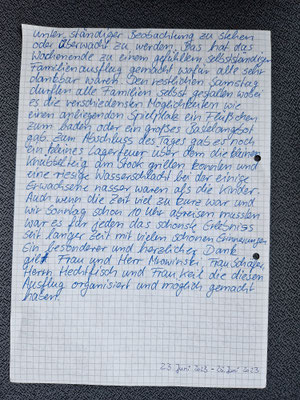 unter ständiger Beobachtung zu stehen
oder überwacht zu werden. Das hat das
Wochenende zu einem gefühltem selbstständigen
Familienausflug gemacht wofür alle sehr
dankbar waren. Den restlichen Samstag
durften alle Familien selbst gestalten wobei
es die verschiedensten Möglichkeiten wie
einen anliegenden Spielplatz ein Flüßchen
zum baden oder ein großes Bastelangebot
gab. Zum Abschluss des Tages gab es noch
ein kleines Lagerfeuer über dem die Kinder
Knübbelteig am Stock grillen konnten und
eine riesige Wasserschlacht bei der einige
Erwachsene nasser waren als die Kinder.
Auch wenn die Zeit viel zu kurz war und
wir Sonntag schon 10 Uhr abreisen mussten
war es für jeden das schönste Erlebniss
seit langer Zeit mit vielen schönen Erinnerungen
Ein besonderer und herzlicher Dank
gilt Frau und Herr Frau Schäfer,
Herrn Hechtfisch und Frau Keil die diesen
Ausflug organisiert und möglich gemacht
haben.
23 Juni 2023 - 25 Juni 2023